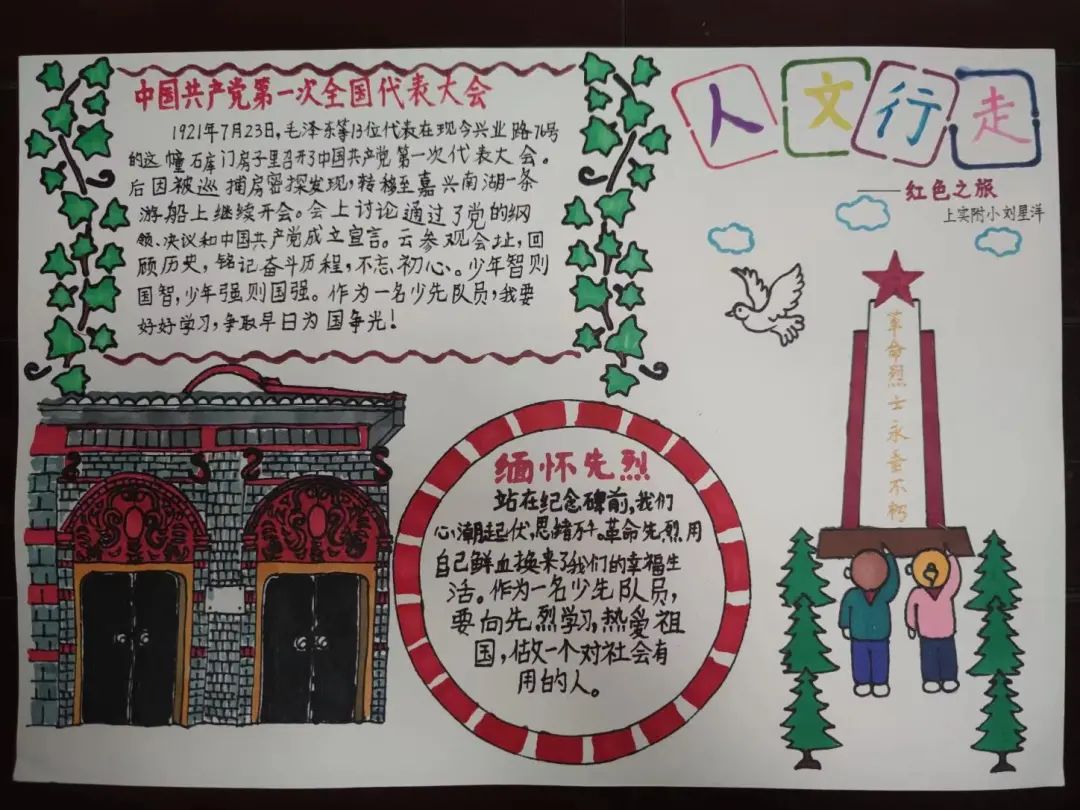 中国共产党第一次全国代表大会
1921年7月23日,毛泽东等13位代表在现今兴业路76号
的这幢石库门房子里召开了中国共产党第一次代表大会。
后因被巡捕房密探发现,转移至嘉兴南湖一条
游船上继续开会。会上讨论通过了党的纲
领、决议和中国共产党成立宣言。云参观会址,回
顾历史,铭记奋斗历程,不忘初心。少年智则
国智,少年强则国强。作为一名少先队员,我要
好好学习,争取早日为国争光!
人文行走
——红色之旅
上实附小刘星洋
革命烈士永垂不朽
缅怀先烈
站在纪念碑前,我们
心潮起伏,思绪万千。革命先烈用
自己鲜血换来了我们的幸福生
活。作为一名少先队员,
要向先烈学习,热爱祖
国,做一个对社会有
用的人。